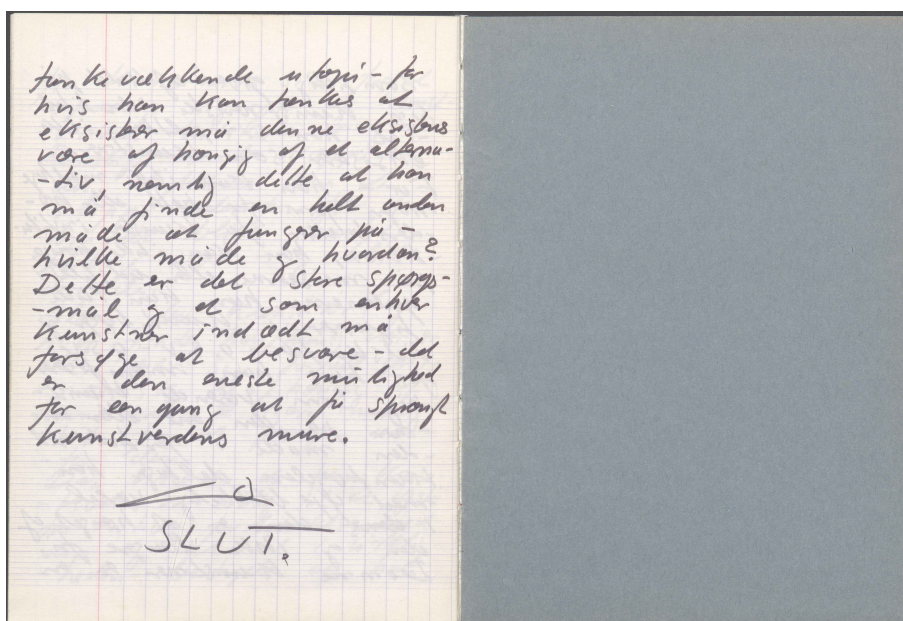 tankevækkende utopi - for
hvis han kan tænkes at
eksistere må denne eksistens
være afhængig af et alterna-
-tiv, nemlig dette at han
må finde en helt anden
måde at fungere på -
hvilke måde og hvordan?
Dette er det store spørgs-
-mål og et som enhver
kunstner indædt må
forsøge at besvare - det
er den eneste mulighed
for een gang at få sprængt
kunstverdens mure.
SLUT.